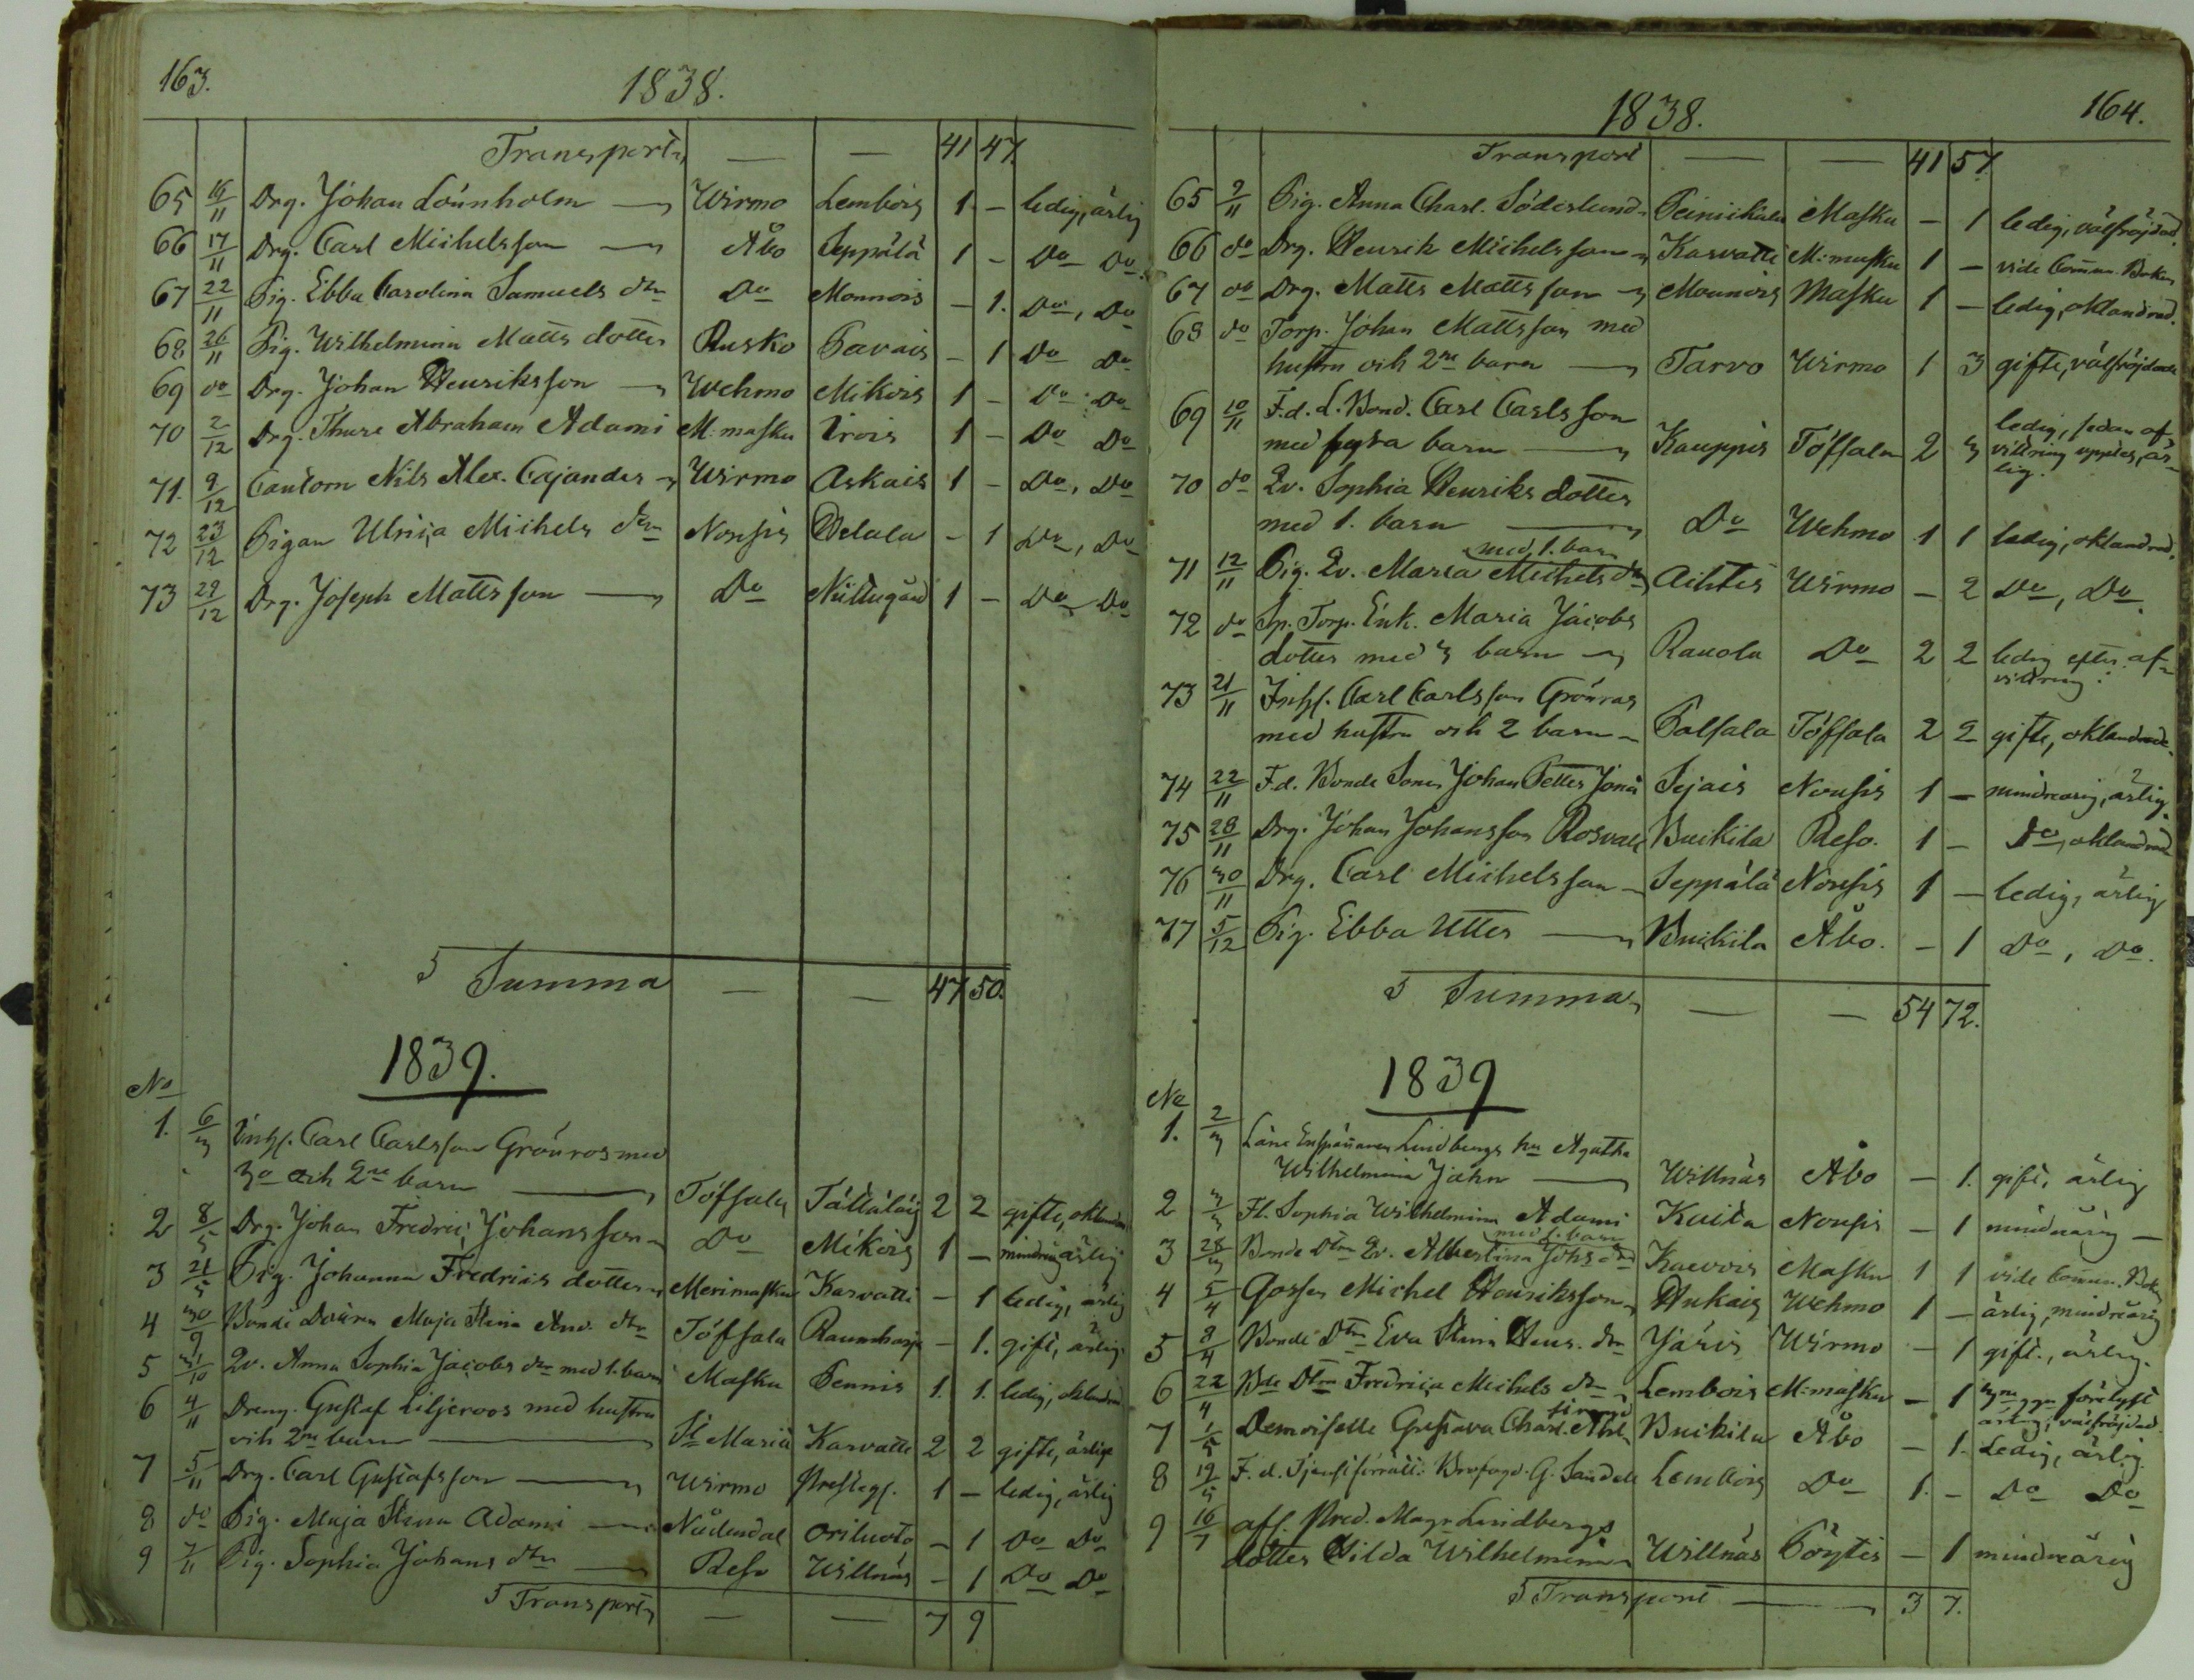 163.
1838.
Transport — — 41 47.
65 16/11 Drg. Johan Lönnholm — Wirmo Lembois 1 - ledig, ärlig
66 17/11 Drg. Carl Michelsson — Åbo Seppälä 1 - Do Do
67 22/11 Pig. Ebba Carolina Samuels dtr Do Monnois - 1. Do, Do
68 26/11 Pig. Wilhelmina Matts dotter Rusko Pavais - 1 Do Do
69 do Drg. Johan Henriksson — Wehmo Mikois 1 - Do Do
70 2/12 Drg. Thure Abraham Adami M:masku Irois 1 - Do Do
71. 9/12 Cantorn Nils Alex. Cajander Wirmo Askais 1 - Do, Do
72 23/12 Pigan Ulrica Michels dtr Nousis Welala - 1 Do, Do
73 29/12 Drg. Joseph Mattsson — Do Niittugård 1 - Do Do
Summa — — 47 50.
1839.
No
1. 6/3 Inhs. Carl Carlsson Grönros med
hu och 2ne barn — Töfsala Tättäläis 2 2 gifte, oklandr.
2 8/5 Drg. Johan Fredric Johansson Do Mikois 1 - mindreårig ärlig
3 21/5 Pig. Johanna Fredrics dotter Merimasku Karvatti - 1 ledig, ärlig
4 30/9 Bonde Dottren Maja Stina And. dtr Töfsala Raumharju - 1. gift, ärlig.
5 31/10 Qv. Anna Sophia Jacobs dtr med 1. barn Masku Pennis 1. 1. ledig, oklandrad
6 4/11 Dreng. Gustaf Liljeroos med hustru
och 2ne barn — St Mariæ Karvatti 2 2 gifte, ärlige
7 5/11 Drg. Carl Gustafsson — Wirmo Prestegs. 1 - ledig, ärlig
8 do Pig. Maja Stina Adami — Nådendal Oriluoto - 1 Do Do
9 7/11 Pig. Sophia Johans dtr — Reso Willnäs - 1 Do Do
Transport — — 7 9
1838.
164.
Transport — — 41 57.
65 2/11 Pig. Anna Charl. Söderlund Peinikala Masku - 1 ledig, välfräjdad.
66 do Drg. Henrik Michelsson Karvatti M:masku 1 - vide Comun. Boken
67 do Drg. Matts Mattsson Monnois Masku 1 - ledig, oklandrad.
68 do Torp. Johan Mattsson med
hustru och 2ne barn — Tarvo Wirmo 1 3 gifte, välfräjdade
69 10/11 F.d. L. Bond. Carl Carlsson
med fyra barn — Kauppis Töfsala 2 3 ledig, sedan af-
vittring uppter, är-
lig.
70 do Qv. Sophia Henriks dotter
med 1. barn — Do Wehmo 1 1 ledig, oklandrad.
med 1. barn
71 12/11 Pig. Qv. Maria Michels dtr Aihtis Wirmo - 2 Do, Do.
72 do Sp. Torp. Enk. Maria Jacobs
dotter med 3 barn Rauola Do 2 2 ledig efter af-
vittring.
73 21/11 Inhs. Carl Carlsson Grönros
med hustru och 2 barn Palsala Töfsala 2 2 gifte, oklandrade.
74 22/11 F.d. Bonde Sonen Johan Petter Jona Sejais Nousis 1 - mindreårig, ärlig.
75 28/11 Drg. Johan Johansson Rosvall Buikila Reso. 1 - Do, oklandrad
76 30/11 Drg. Carl Michelsson Seppälä Nousis 1 - ledig, ärlig
77 5/12 Pig. Ebba Utter — Buikila Åbo. - 1 Do, Do.
Summa — — 54 72.
1839
No
1. 2/3 Läne Enspännaren Lindbergs hu Agatha
Wilhelmina Jahn — Willnäs Åbo - 1. gift, ärlig
2 3/3 Fl. Sophia Wilhelmina Adami Kuita Nousis - 1 mindreårig —
med 1. barn
3 28/3 Bonde Dtrn Qv. Albertina Johs dtr Kaevois Masku 1 1 vide Comun. Boken
4 5/4 Gossen Michel Henriksson Hukais Wehmo 1 - ärlig, mindreårig
5 8/4 Bonde Dtrn Eva Stina Henr. dtr Yjäris Wirmo - 1 gift., ärlig.
6 22/4 Bde Dtrn Fredrica Michels dtr Lembois M:masku - 1 3ne ggr förelyst
ärlig, välfräjdad.
7 1/5 Demoiselle Gustava Charl. Ahl- Buikila Åbo - 1. Ledig, ärlig.
8 19/5 F.d. Tjensteförrätt. Brofogd. G. Sandell Lembois Do 1. - Do Do
9 16/7 afl. Pred. Mag. Lindbergs
dotter Hilda Wilhelmina Willnäs Pöytis - 1 mindreårig
Transport — 3 7.